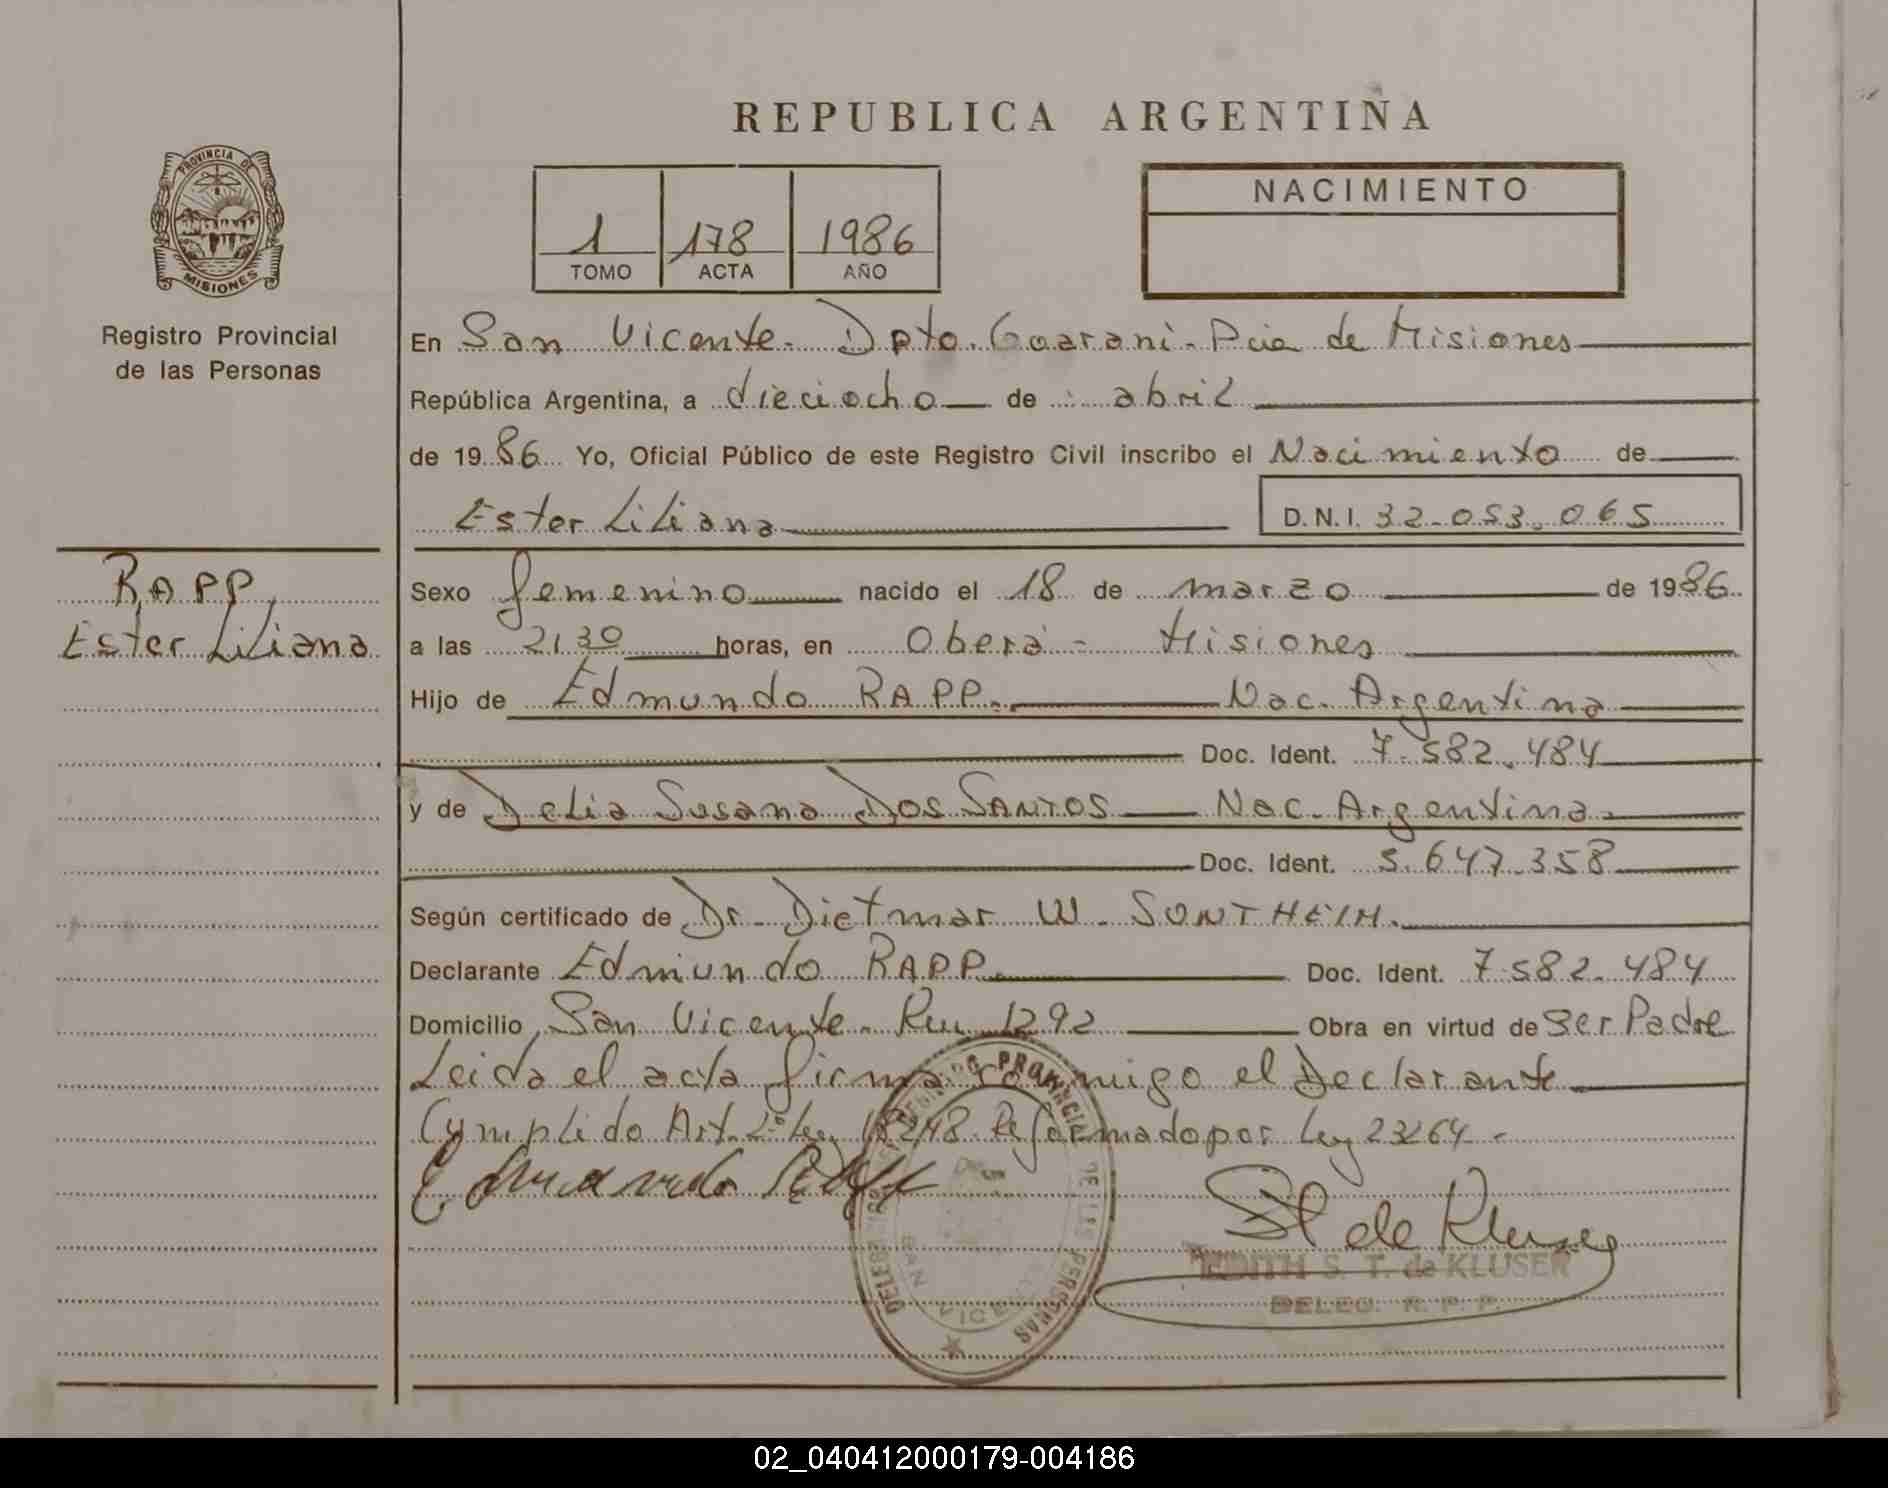 REPUBLICA ARGENTINA
PROVINCIA DE
MISIONES
Registro Provincial
de las Personas
1 178 1986
TOMO ACTA AÑO
NACIMIENTO
En San Vicente. Dpto. Guarani. Pcia de Misiones
República Argentina, a dieciocho de abril
de 1986 Yo, Oficial Público de este Registro Civil inscribo el Nacimiento de
Ester Liliana D.N.I. 32.053.065
RAPP,
Ester Liliana
Sexo femenino nacido el 18 de marzo de 1986
a las 21,30 horas, en Oberá - Misiones
Hijo de Edmundo RAPP. Nac. Argentina
Doc. Ident. 7.582.484
y de Delia Susana DOS SANTOS Nac. Argentina
Doc. Ident. 5.647.358
Según certificado de Dr. Dietmar W. SONTHEIM.
Declarante Edmundo RAPP. Doc. Ident. 7.582.484
Domicilio San Vicente. 1292 Obra en virtud de ser Padre
Leida el acta firma conmigo el Declarante
Cumplido Art. 2º Ley 18248 Reformado por Ley 23264 -
PROVINCIAL DE LAS PERSONAS
SAN VICENTE
EDITH S. T. de KLUSER
DELEG. R. P. P.
02_040412000179-004186